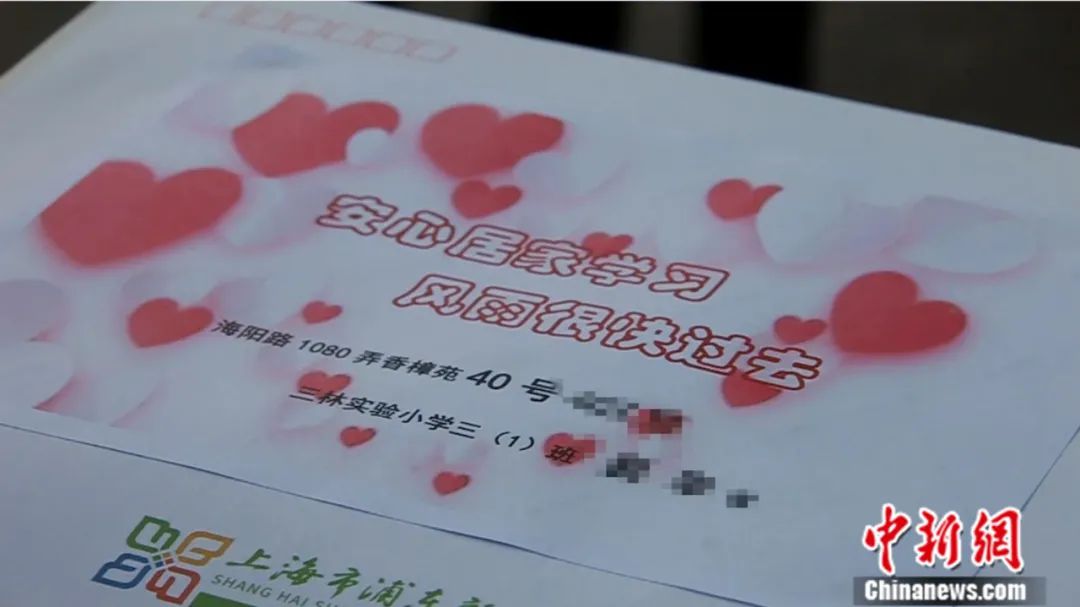 安心居家学习
风雨很快过去
海阳路1080弄香樟苑40号
三林实验小学三（1）班
上海市浦东新
SHANG HAI SH
中新网
Chinanews.com